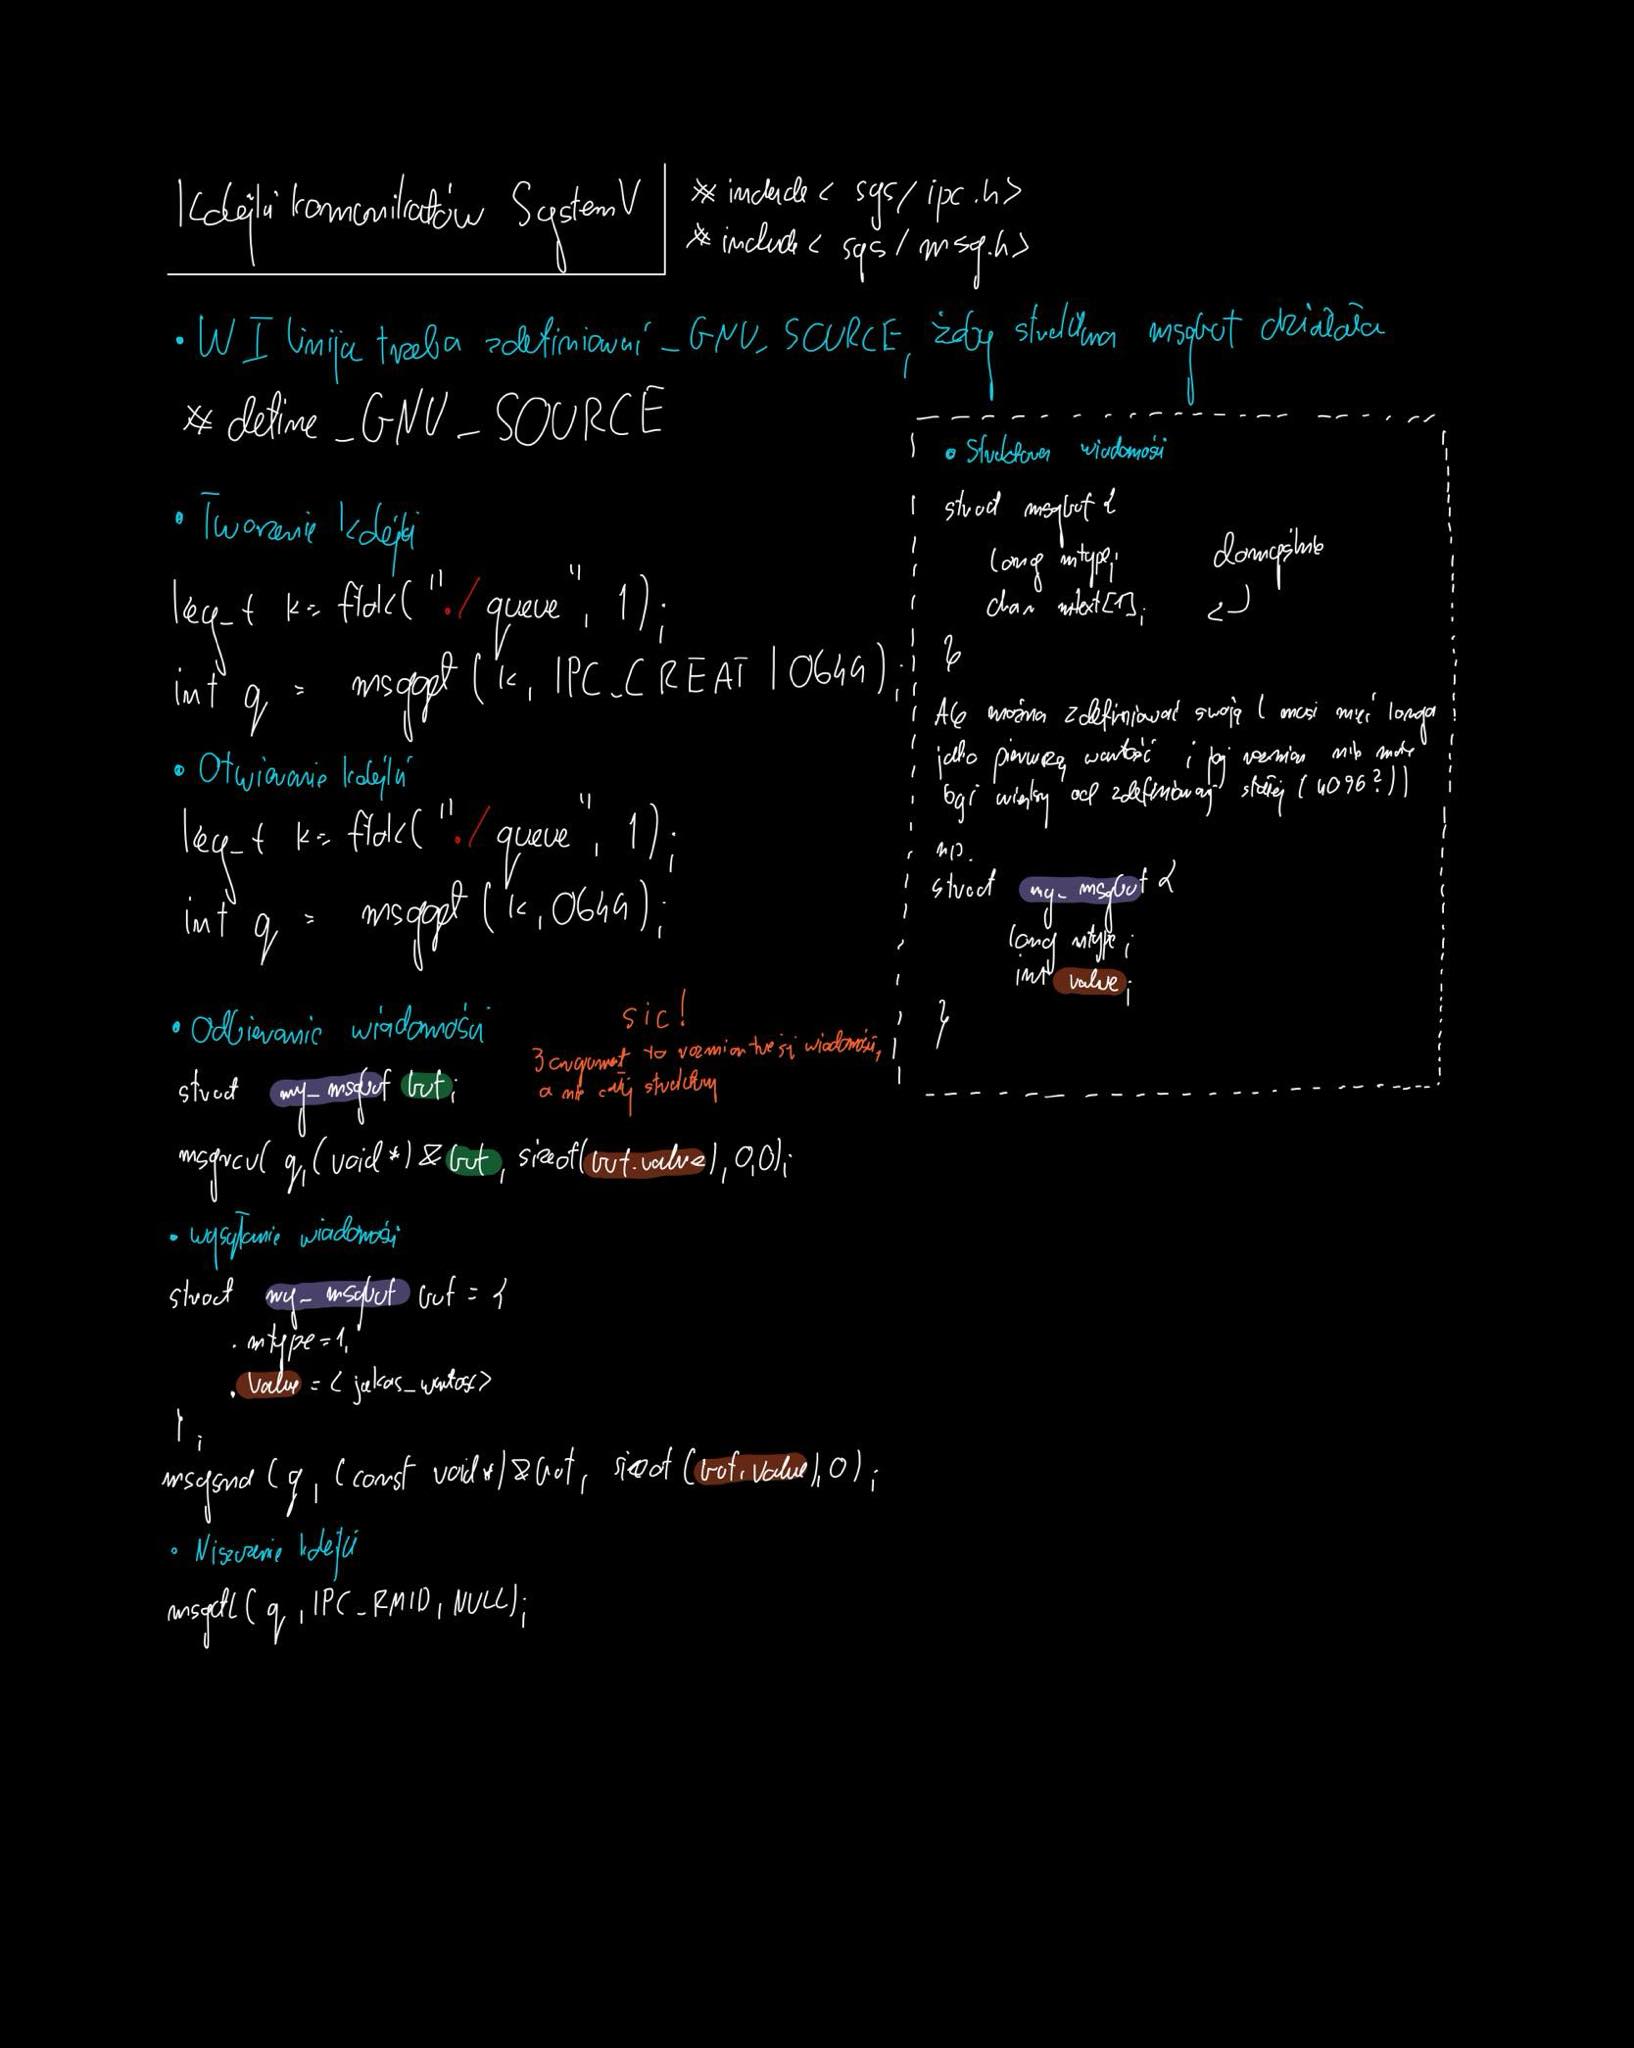 Kolejki komunikatów System V
# include < sys/ipc.h>
# include < sys/msg.h>
• W I linijce trzeba zdefiniować _GNU_SOURCE, żeby struktura msgbuf działała
# define _GNU_SOURCE
• Tworzenie kolejki
key_t k = ftok("./queue", 1);
int q = msgget(k, IPC_CREAT | 0644);
• Otwieranie kolejki
key_t k = ftok("./queue", 1);
int q = msgget(k, 0644);
• Odbieranie wiadomości
sic!
3 argument to rozmiar treści wiadomości,
a nie całej struktury
struct my_msgbuf buf;
msgrcv( q, (void *) &buf, sizeof(buf.value), 0,0);
• wysyłanie wiadomości
struct my_msgbuf buf = {
.mtype = 1,
.value = < jakas_wartosc>
};
msgsnd (q, (const void*) &buf, sizeof (buf.value), 0);
• Niszczenie kolejki
msgctl( q, IPC_RMID, NULL);
• Struktura wiadomości
struct msgbuf {
long mtype;
char mtext[1];
domyślnie
}
Ale można zdefiniować swoją ( musi mieć longa
jako pierwszą wartość i jej rozmiar nie może
być większy od zdefiniowanej stałej (4096?))
np.
struct my_msgbuf {
long mtype;
int value;
}